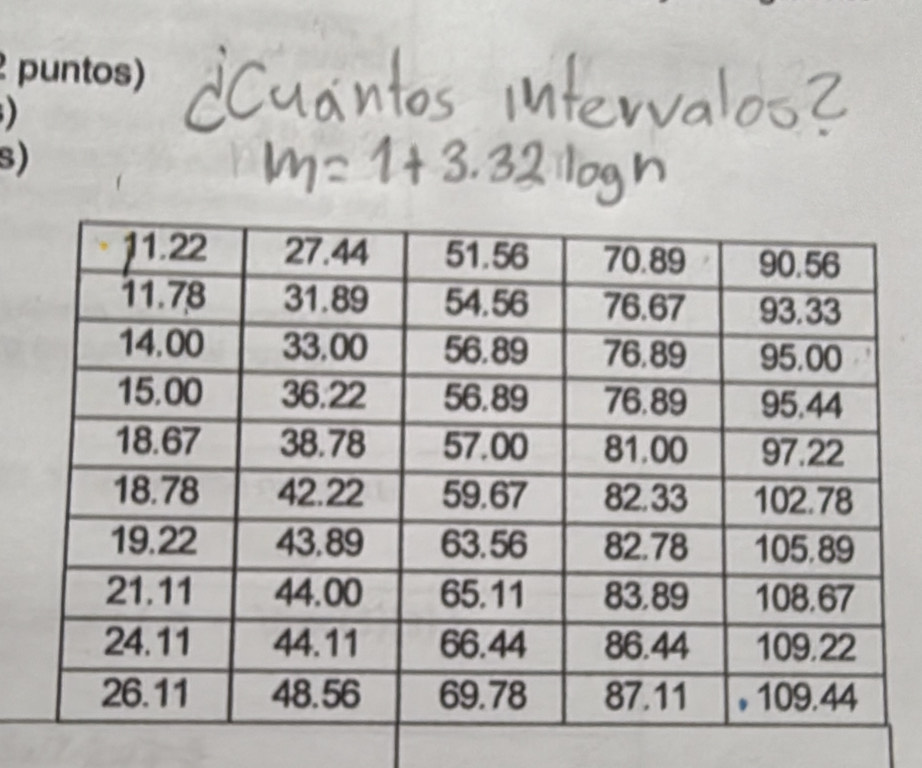 puntos)
¿Cuántos intervalos?
)
s)
m= 1+3.32 logn
11.22 27.44 51.56 70.89 90.56
11.78 31.89 54.56 76.67 93.33
14.00 33.00 56.89 76.89 95.00
15.00 36.22 56.89 76.89 95.44
18.67 38.78 57.00 81.00 97.22
18.78 42.22 59.67 82.33 102.78
19.22 43.89 63.56 82.78 105.89
21.11 44.00 65.11 83.89 108.67
24.11 44.11 66.44 86.44 109.22
26.11 48.56 69.78 87.11 109.44